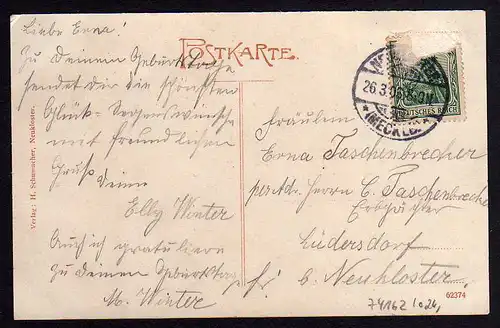 Liebe Erna!
Zu Deinem Geburtstage
sendet dir die schönsten
Glück- Segenswünsche
mit freundlichem
Gruß Deine
Elly Winter
Auch ich gratuliere
zu Deinen Geburtstag
M. Winter
POSTKARTE.
26.3.06
(MECKLB.)
DEUTSCHES REICH
Fräulein
Erna Taschenbrecher
per Adr. Herrn C. Taschenbrecher
Erbpächter
Lüdersdorf
b. Neukloster
62374
74162
Verlag: H. Schumacher, Neukloster.